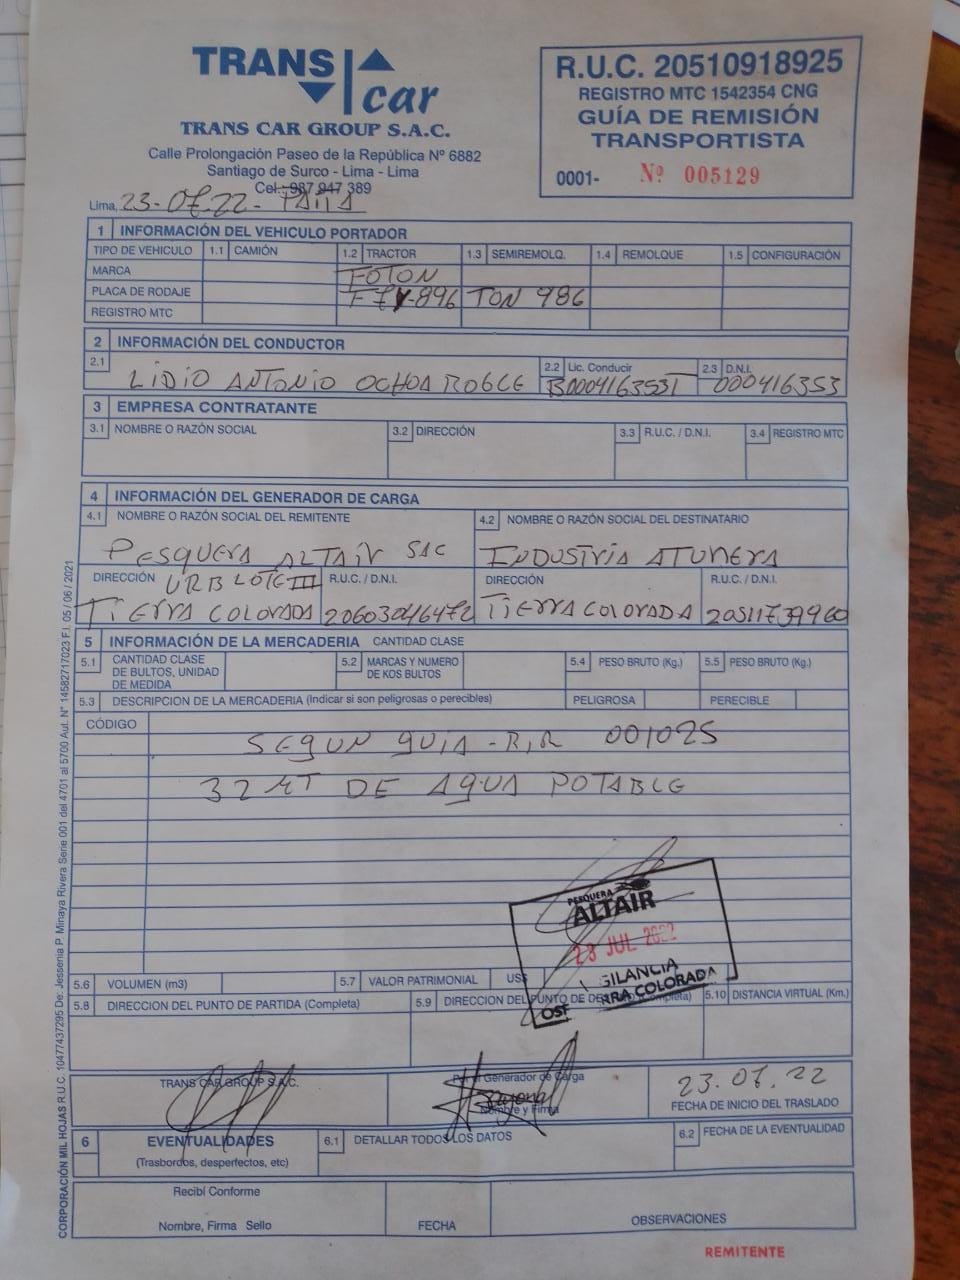 TRANS car
TRANS CAR GROUP S.A.C.
Calle Prolongación Paseo de la República Nº 6882
Santiago de Surco - Lima - Lima
Cel.: 987 947 389
R.U.C. 20510918925
REGISTRO MTC 1542354 CNG
GUÍA DE REMISIÓN
TRANSPORTISTA
0001- Nº 005129
Lima, 23-07.22- PAITA
1 INFORMACIÓN DEL VEHICULO PORTADOR
TIPO DE VEHICULO 1.1 CAMIÓN 1.2 TRACTOR 1.3 SEMIREMOLQ. 1.4 REMOLQUE 1.5 CONFIGURACIÓN
MARCA FOTON
PLACA DE RODAJE -896 TON 986
REGISTRO MTC
2 INFORMACIÓN DEL CONDUCTOR
2.1 2.2 Lic. Conducir 2.3 D.N.I.
LIDIO ANTONIO OCHOA ROBLE B000416353 000416353
3 EMPRESA CONTRATANTE
3.1 NOMBRE O RAZÓN SOCIAL 3.2 DIRECCIÓN 3.3 R.U.C. / D.N.I. 3.4 REGISTRO MTC
4 INFORMACIÓN DEL GENERADOR DE CARGA
4.1 NOMBRE O RAZÓN SOCIAL DEL REMITENTE 4.2 NOMBRE O RAZÓN SOCIAL DEL DESTINATARIO
PESQUERA ALTAIR SAC INDUSTRIA ATUNERA
DIRECCIÓN URB LOTE III R.U.C. / D.N.I. DIRECCIÓN R.U.C. / D.N.I.
TIERRA COLORADA 20603046472 TIERRA COLORADA 20511739960
5 INFORMACIÓN DE LA MERCADERIA CANTIDAD CLASE
5.1 CANTIDAD CLASE DE BULTOS, UNIDAD DE MEDIDA 5.2 MARCAS Y NUMERO DE KOS BULTOS 5.4 PESO BRUTO (Kg.) 5.5 PESO BRUTO (Kg.)
5.3 DESCRIPCION DE LA MERCADERIA (Indicar si son peligrosas o perecibles) PELIGROSA PERECIBLE
CÓDIGO
SEGUN GUIA - R,R 001025
32 MT DE AGUA POTABLE
PESQUERA
ALTAIR
23 JUL 2022
VIGILANCIA
TIERRA COLORADA
5.6 VOLUMEN (m3) 5.7 VALOR PATRIMONIAL US$
5.8 DIRECCION DEL PUNTO DE PARTIDA (Completa) 5.9 DIRECCION DEL PUNTO DE (Completa) 5.10 DISTANCIA VIRTUAL (Km.)
TRANS CAR GROUP S.A.C. Por el Generador de Carga
Nombre y Firma
23.07.22
FECHA DE INICIO DEL TRASLADO
6 EVENTUALIDADES 6.1 DETALLAR TODOS LOS DATOS 6.2 FECHA DE LA EVENTUALIDAD
(Trasbordos, desperfectos, etc)
Recibí Conforme
Nombre, Firma Sello FECHA OBSERVACIONES
REMITENTE
CORPORACIÓN MIL HOJAS R.U.C. 10477437295 De: Jessenia P. Minaya Rivera Serie 001 del 4701 al 5700 Aut. N° 14582717023 F.I. 05 / 06 / 2021